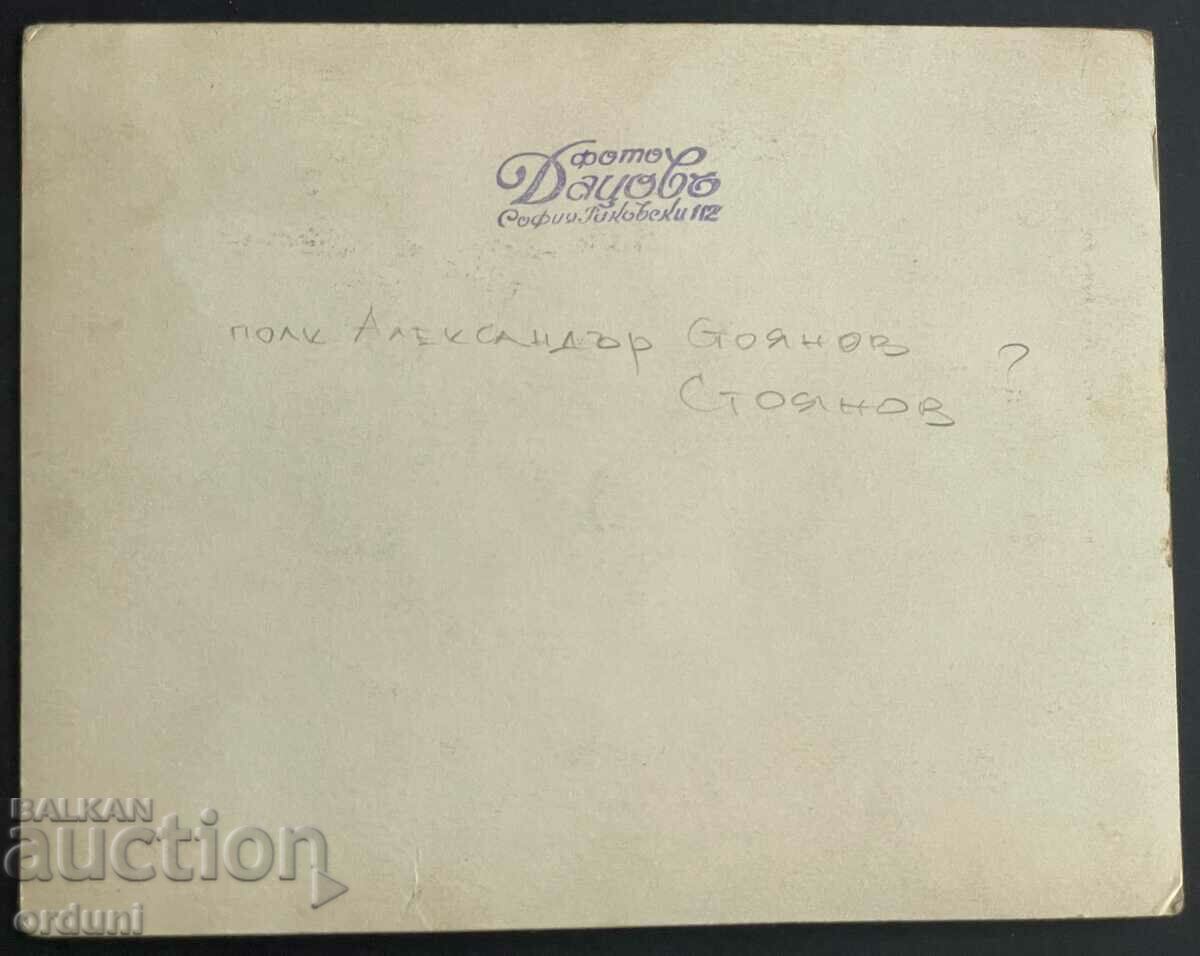 фото
Дацовъ
София. Раковски 112
полк Александър Соянов
Стоянов ?
BALKAN
auction
orduni